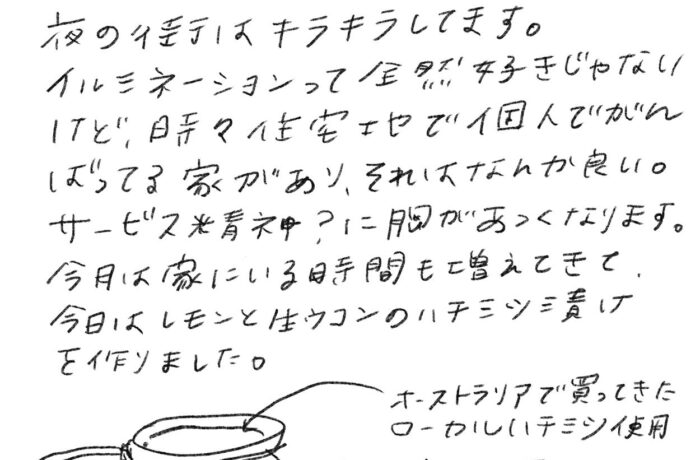 夜の街はキラキラしてます。
イルミネーションって全然好きじゃない
けど、時々住宅地で個人でがん
ばってる家があり、それはなんか良い。
サービス精神？に胸があつくなります。
今月は家にいる時間も増えてきて、
今日はレモンと生ウコンのハチミツ漬け
を作りました。
オーストラリアで買ってきた
ローカルハチミツ使用